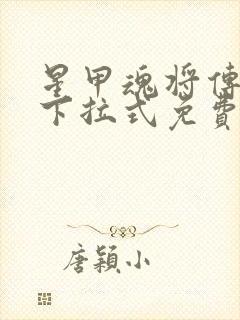 星甲魂将傳
下拉式免費
唐穎小